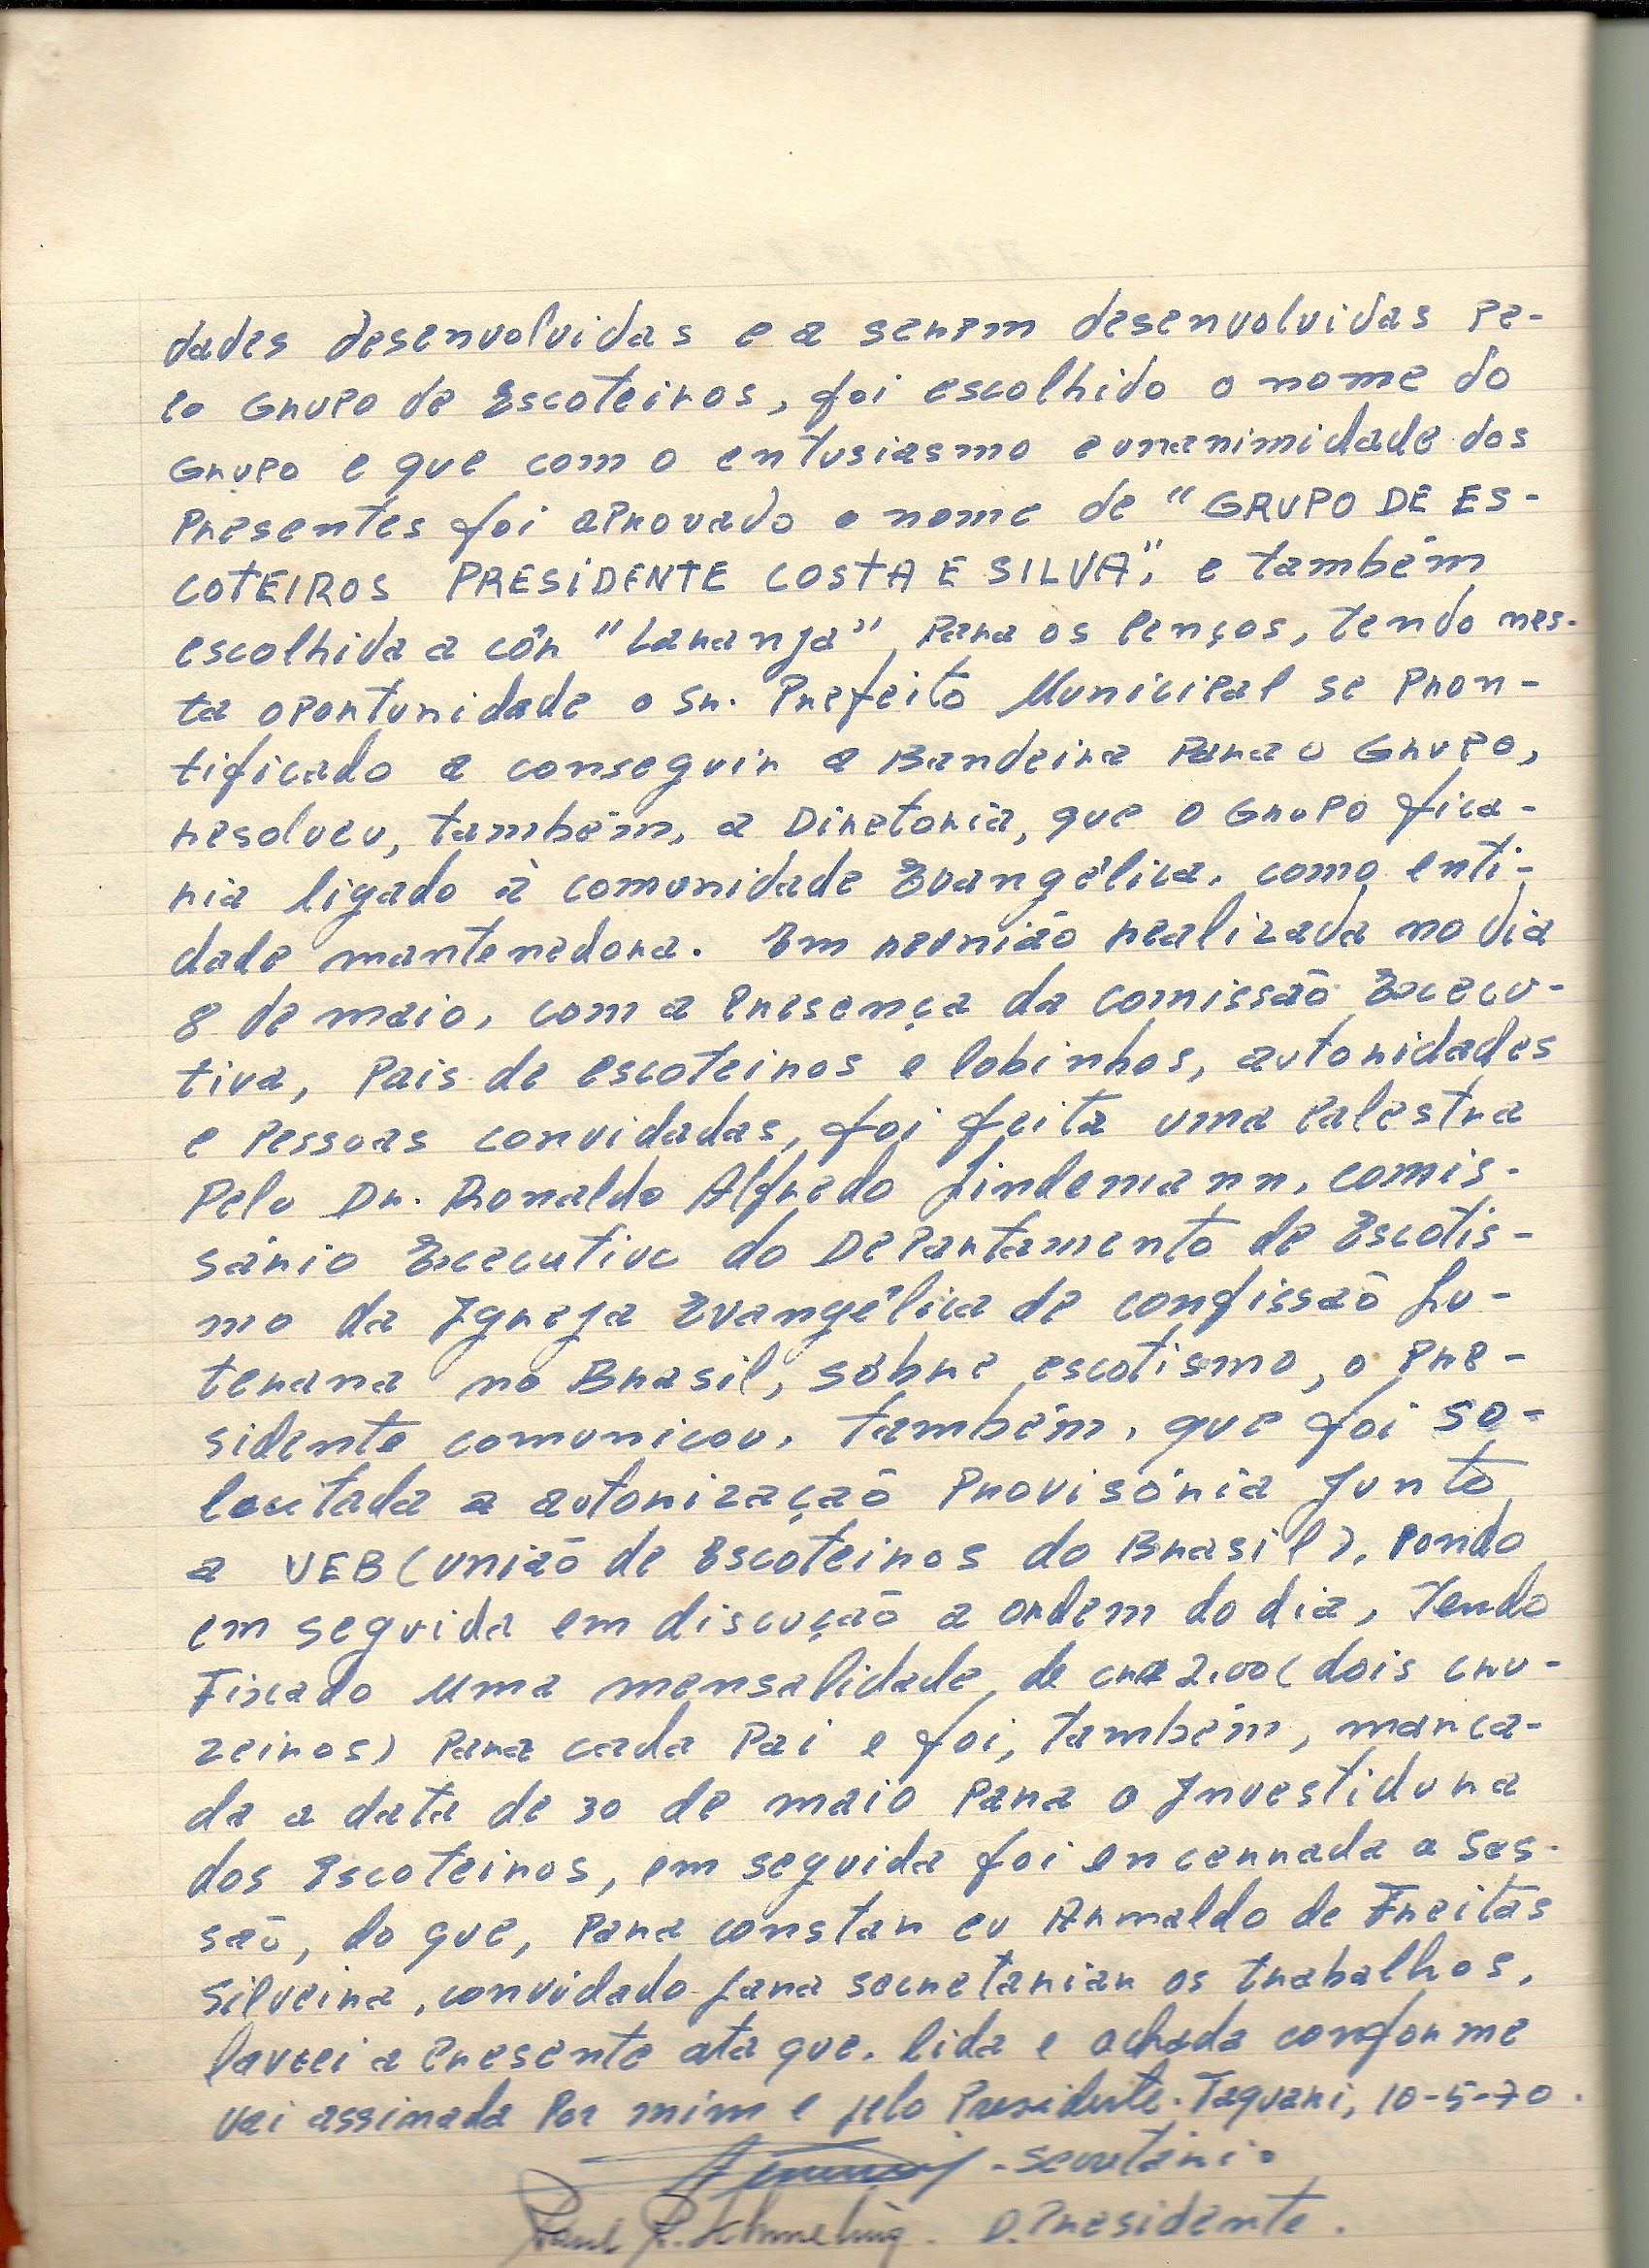 dades desenvolvidas e a serem desenvolvidas pe-
lo Grupo de Escoteiros, foi escolhido o nome do
Grupo e que com o entusiasmo e unanimidade dos
Presentes foi aprovado o nome de "GRUPO DE ES-
COTEIROS PRESIDENTE COSTA E SILVA", e também
escolhida a côr "Laranja", para os lenços, tendo nes-
ta oportunidade o Sr. Prefeito Municipal se pron-
tificado a conseguir a Bandeira para o Grupo,
resolveu, também, a Diretoria, que o Grupo fica-
ria ligado à comunidade Evangélica, como enti-
dade mantenedora. Em reunião realizada no dia
8 de maio, com a presença da comissão Execu-
tiva, Pais de escoteiros e lobinhos, autoridades
e pessoas convidadas, foi feita uma palestra
pelo Dr. Ronaldo Alfredo Lindemann, comis-
sário Executivo do Departamento de Escotis-
mo da Igreja Evangélica de confissão Lu-
terana no Brasil, sôbre escotismo, o Pre-
sidente comunicou, também, que foi so-
licitada a autorização Provisória junto
a UEB (união de Escoteiros do Brasil), pondo
em seguida em discução a ordem do dia, Tendo
Fixado uma mensalidade de cr$ 2,00 (dois cru-
zeiros) para cada Pai e foi, também, marca-
da a data de 30 de maio para o Investidura
dos Escoteiros, em seguida foi encerrada a ses-
são, do que, para constar eu Arnaldo de Freitas
Silveira, convidado para secretariar os trabalhos,
lavrei a presente ata que, lida e achada conforme
vai assinada por mim e pelo Presidente. Taquari, 10-5-70.
- secretário
Raul R. Schmeling. D. Presidente.